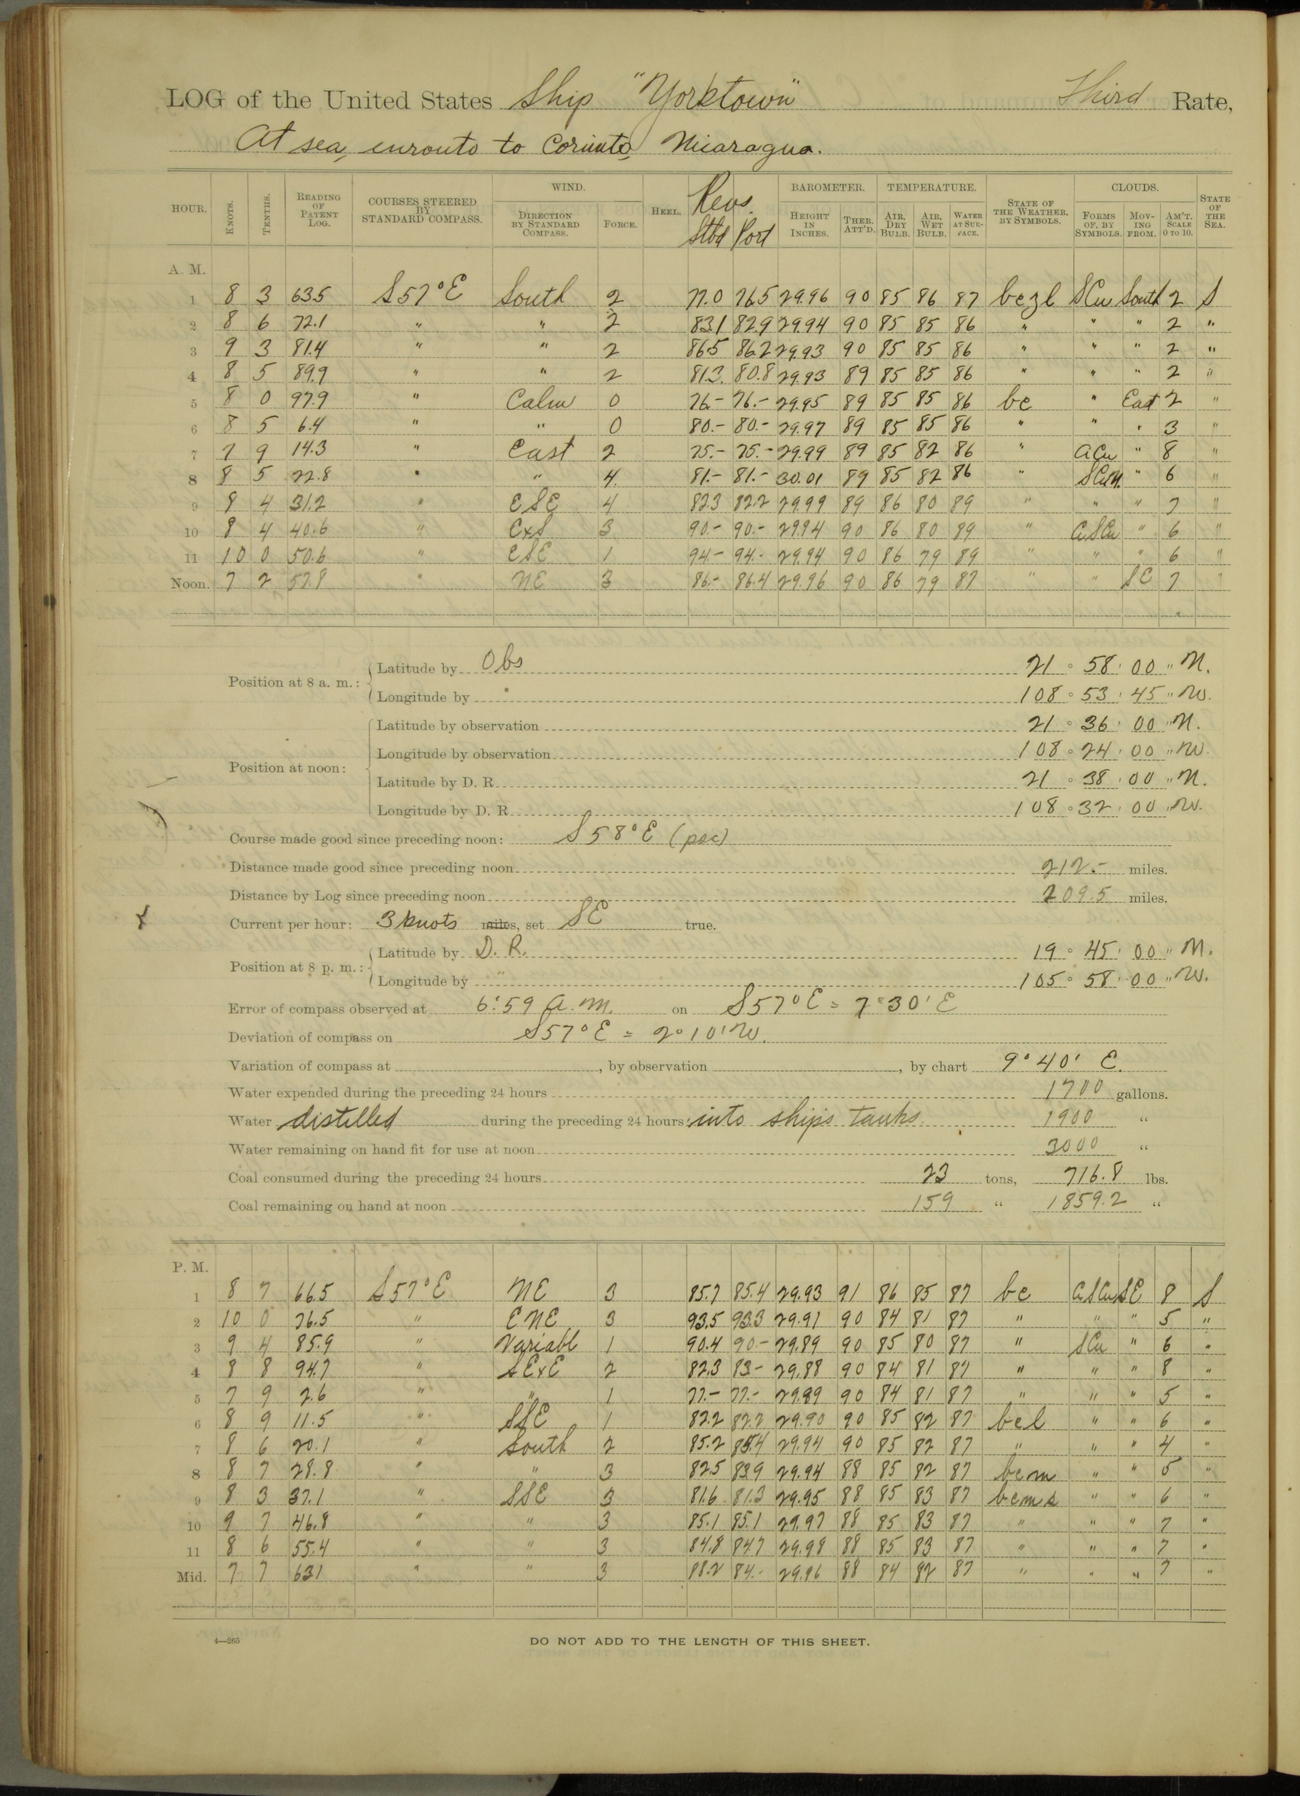 LOG of the United States Ship "Yorktown" Third Rate,
At sea, enroute to Corinto, Nicaragua.
HOUR. KNOTS. TENTHS. READING OF PATENT LOG. COURSES STEERED BY STANDARD COMPASS. WIND. DIRECTION BY STANDARD COMPASS. FORCE. HEEL. Revs. Stbd Port BAROMETER. HEIGHT IN INCHES. THER. ATT'D. TEMPERATURE. AIR, DRY BULB. AIR, WET BULB. WATER AT SURFACE. STATE OF THE WEATHER, BY SYMBOLS. CLOUDS. FORMS OF, BY SYMBOLS. MOVING FROM. AM'T. SCALE 0 TO 10. STATE OF THE SEA.
A. M.
1 8 3 63.5 S57°E South 2 77.0 76.5 29.96 90 85 86 87 bczl SCu South 2 S
2 8 6 72.1 " " 2 83.1 82.9 29.94 90 85 85 86 " " " 2 "
3 9 3 81.4 " " 2 86.5 86.2 29.93 90 85 85 86 " " " 2 "
4 8 5 89.9 " " 2 81.3 80.8 29.93 89 85 85 86 " " " 2 "
5 8 0 97.9 " Calm 0 76.- 76.- 29.95 89 85 85 86 bc " East 2 "
6 8 5 6.4 " " 0 80.- 80.- 29.97 89 85 85 86 " " " 3 "
7 7 9 14.3 " East 2 75.- 75.- 29.99 89 85 82 86 " ACu " 8 "
8 8 5 22.8 " " 4 81.- 81.- 30.01 89 85 82 86 " SCuN. " 6 "
9 8 4 31.2 " ESE 4 82.3 82.2 29.99 89 86 80 89 " " " 7 "
10 9 4 40.6 " ExS 3 90.- 90.- 29.94 90 86 80 89 " ASCu " 6 "
11 10 0 50.6 " ESE 1 94- 94.- 29.94 90 86 79 89 " " " 6 "
Noon. 7 2 57.8 " NE 3 86.- 86.4 29.96 90 86 79 87 " " SE 7 "
Position at 8 a. m.: Latitude by Obs 21 ° 58 ' 00 " N.
Longitude by " 108 ° 53 ' 45 " W.
Position at noon: Latitude by observation 21 ° 36 ' 00 " N.
Longitude by observation 108 ° 24 ' 00 " W.
Latitude by D. R. 21 ° 38 ' 00 " N.
Longitude by D. R. 108 ° 32 ' 00 " W.
Course made good since preceding noon: S58°E (psc)
Distance made good since preceding noon 212.- miles.
Distance by Log since preceding noon 209.5 miles.
Current per hour: 3 knots miles, set SE true.
Position at 8 p. m.: Latitude by D. R. 19 ° 45 ' 00 " N.
Longitude by " 105 ° 58 ' 00 " W.
Error of compass observed at 6:59 a.m. on S57°E = 7°30' E
Deviation of compass on S57°E = 2°10' W.
Variation of compass at , by observation , by chart 9°40' E.
Water expended during the preceding 24 hours 1700 gallons.
Water distilled during the preceding 24 hours: into ship's tanks. 1900 "
Water remaining on hand fit for use at noon 3000 "
Coal consumed during the preceding 24 hours 23 tons, 716.8 lbs.
Coal remaining on hand at noon 159 " 1859.2 "
P. M.
1 8 7 66.5 S57°E NE 3 85.7 85.4 29.93 91 86 85 87 bc ASCu SE 8 S
2 10 0 76.5 " ENE 3 93.5 93.3 29.91 90 84 81 87 " " " 5 "
3 9 4 85.9 " Variabl 1 90.4 90- 29.89 90 85 80 87 " SCu " 6 "
4 8 8 94.7 " SExE 2 82.3 83- 29.88 90 84 81 87 " " " 8 "
5 7 9 2.6 " " 1 77.- 77.- 29.89 90 84 81 87 " " " 5 "
6 8 9 11.5 " SSE 1 82.2 82.2 29.90 90 85 82 87 bcl " " 6 "
7 8 6 20.1 " South 2 85.2 85.4 29.94 90 85 82 87 " " " 4 "
8 8 7 28.8 " " 3 82.5 83.9 29.94 88 85 82 87 bcm " " 5 "
9 8 3 37.1 " SSE 3 81.6 81.3 29.95 88 85 83 87 bcms " " 6 "
10 9 7 46.8 " " 3 85.1 85.1 29.97 88 85 83 87 " " " 7 "
11 8 6 55.4 " " 3 84.8 84.7 29.98 88 85 83 87 " " " 7 "
Mid. 7 7 63.1 " " 3 88.2 84.- 29.96 88 84 82 87 " " " 7 "
4—265
DO NOT ADD TO THE LENGTH OF THIS SHEET.